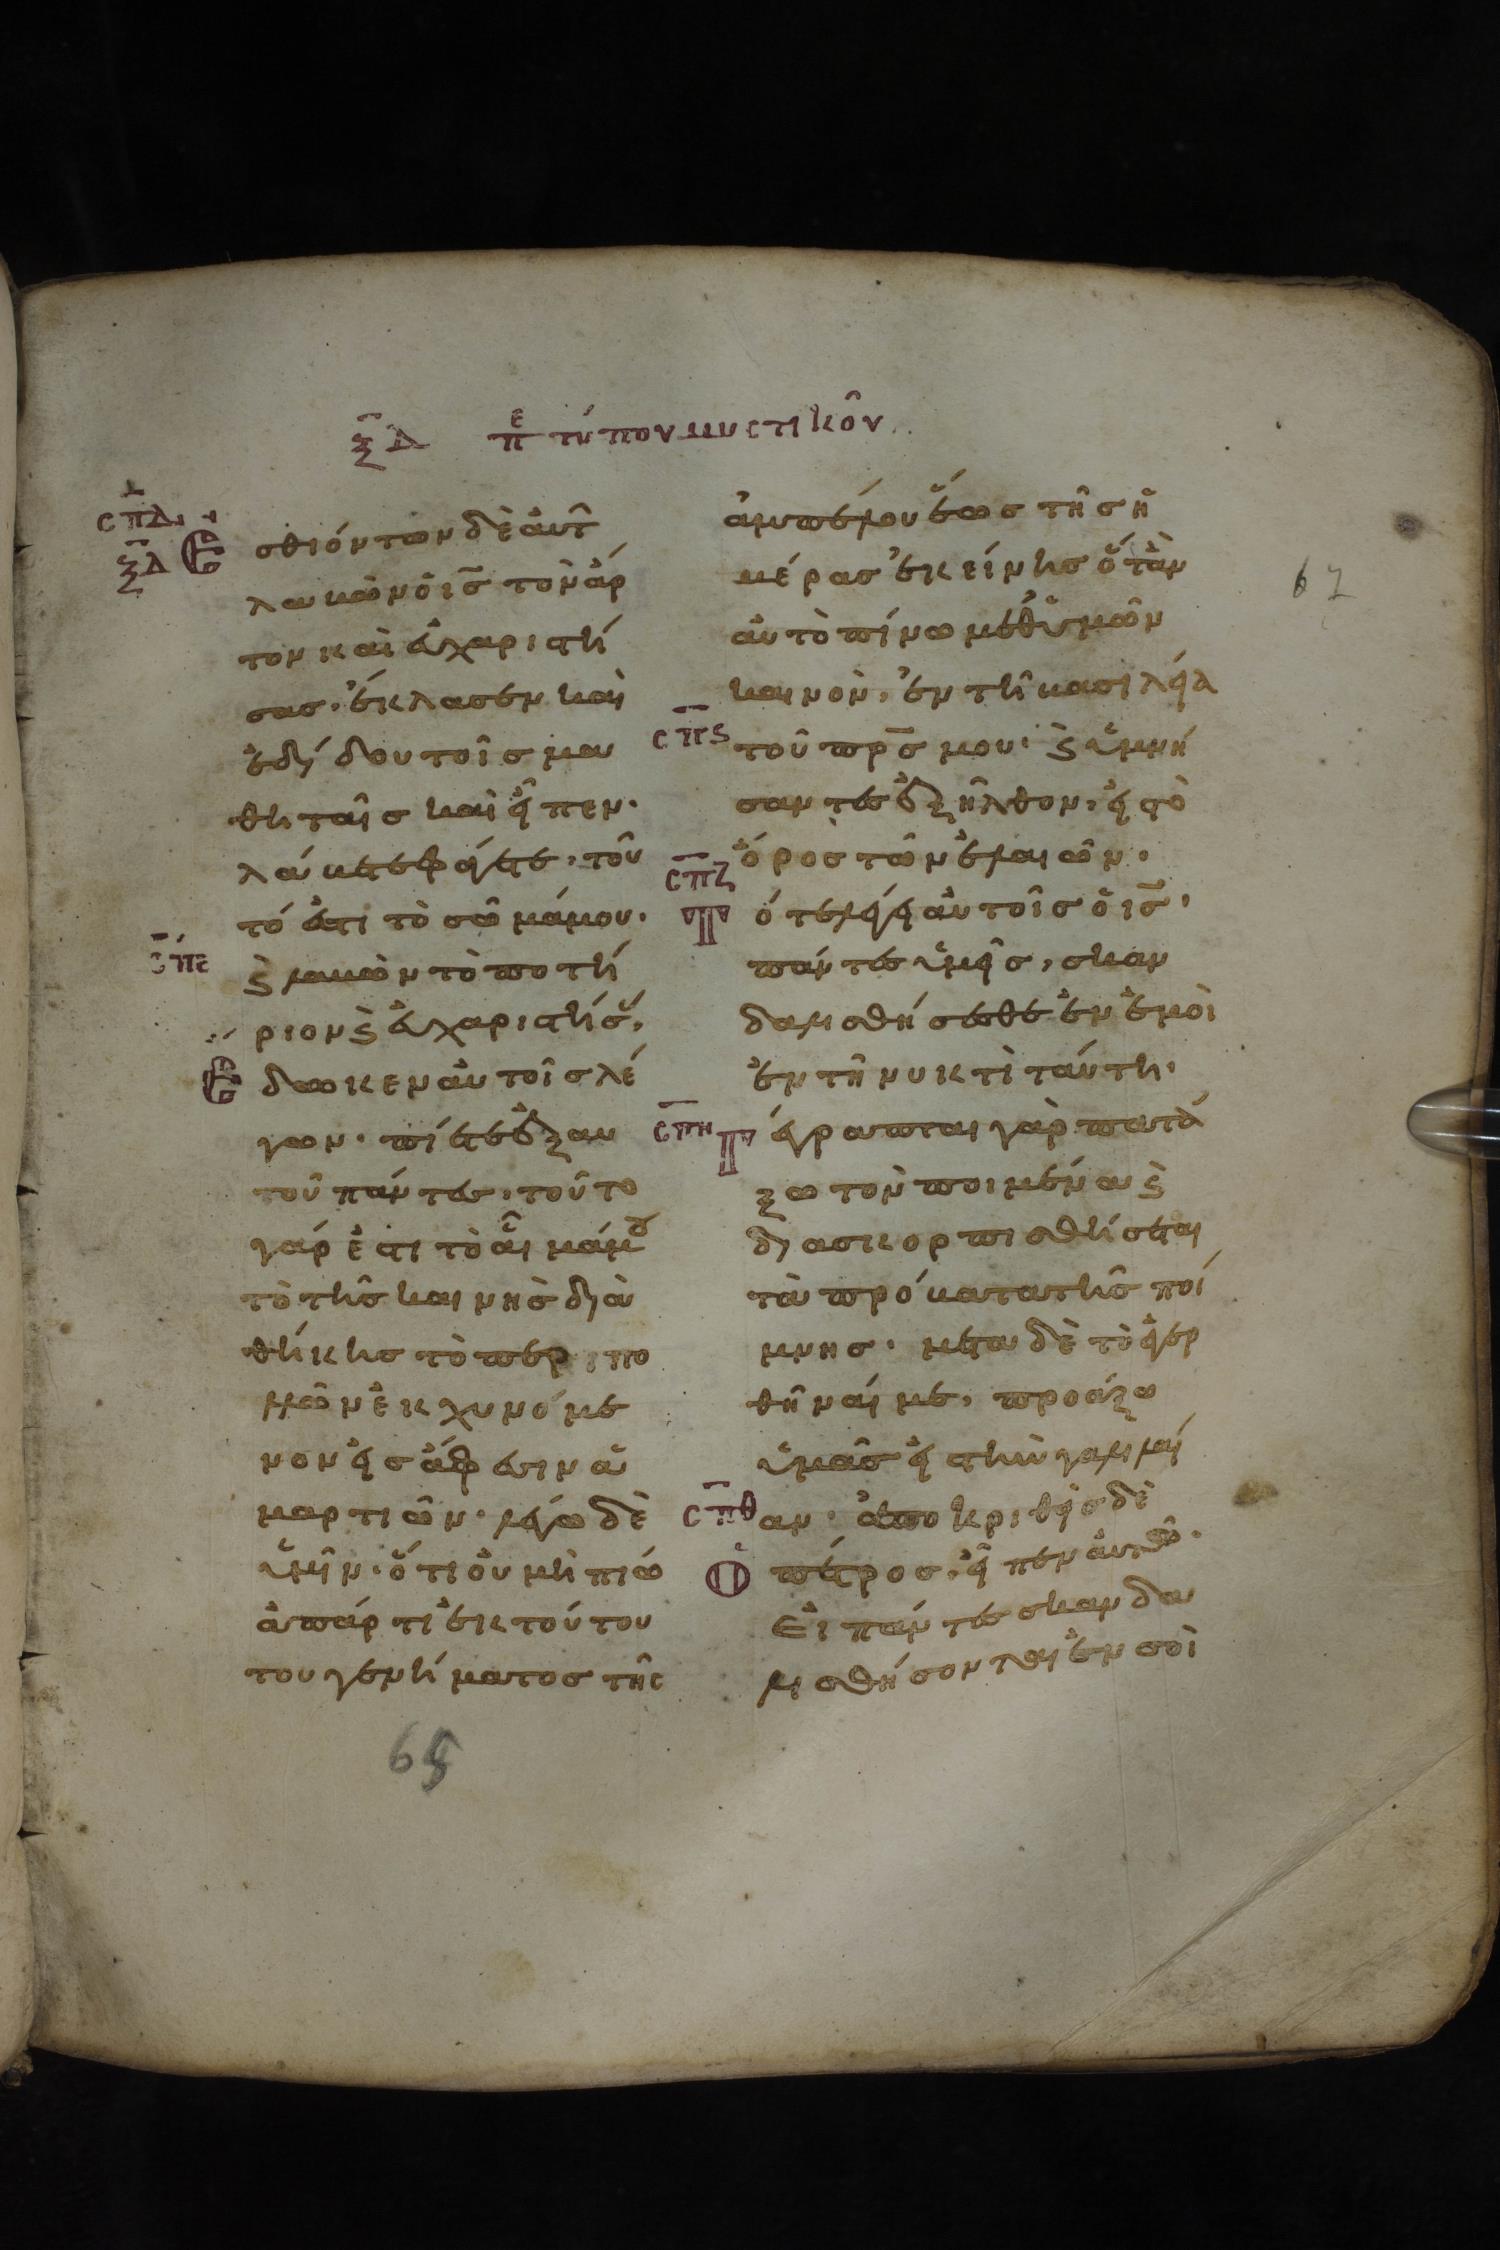 ξδ πε τύπου μυστικοῦ
σπδ
ξδ Εσθιόντων δὲ αὐτ
λαβὼν ὁ ις τὸν ἄρ
τον καὶ εὐχαριστή
σας, ἔκλασεν καὶ
ἐδίδου τοῖς μα
θηταῖς καὶ εἶπεν.
λάβετε φάγετε, τοῦ
τό ἐστι τὸ σῶμά μου.
σπε
ϗ λαβὼν τὸ ποτή
ριον ϗ εὐχαριστήσ,
Εδωκεν αὐτοῖς λέ
γων. πίετε ἐξ αυ
τοῦ πάντες, τοῦτο
γάρ ἐστι τὸ αἷμά μου
τὸ τῆς καινῆς δια
θήκης τὸ περι πο
λλῶν ἐκχυνόμε
νον εἰς ἄφεσιν ἁ
μαρτιῶν. λέγω δὲ
ὑμῖν. ὅτι οὐ μὴ πιω
ἀπάρτι ἐκ τούτου
του γενήματος τῆς
ἀμπέλου ἕως τῆς ἡ
μέρας ἐκείνης ὅταν
αὐτὸ πίνω μεθ ὑμῶν
καινὸν, ἐν τῇ βασιλεία
σπς
τοῦ πρς μου. ϗ ὑμνή
σαντες ἐξῆλθον, εἰς τὸ
ὄρος τῶν ἐλαιῶν.
σπζ
Τότε λέγει αὐτοῖς ὁ ις,
πάντες ὑμεῖς, σκαν
δαλισθήσεσθε ἐν ἐμοὶ
ἐν τῇ νυκτὶ ταύτη,
σπη
Γέγραπται γὰρ πατά
ξω τὸν ποιμένα ϗ
διασκορπισθήσεται
τὰ πρόβατα τῆς ποί
μνης. μετα δὲ τὸ ἐγερ
θῆναί με, προάξω
ὑμᾶς εἰς τὴν γαλιλαί
σπθ
αν. ἀποκριθεὶς δὲ
Ο πέτρος, εἶπεν αυτῶ.
Εἰ πάντες σκανδα
λισθήσονται ἐν σοὶ
67
65